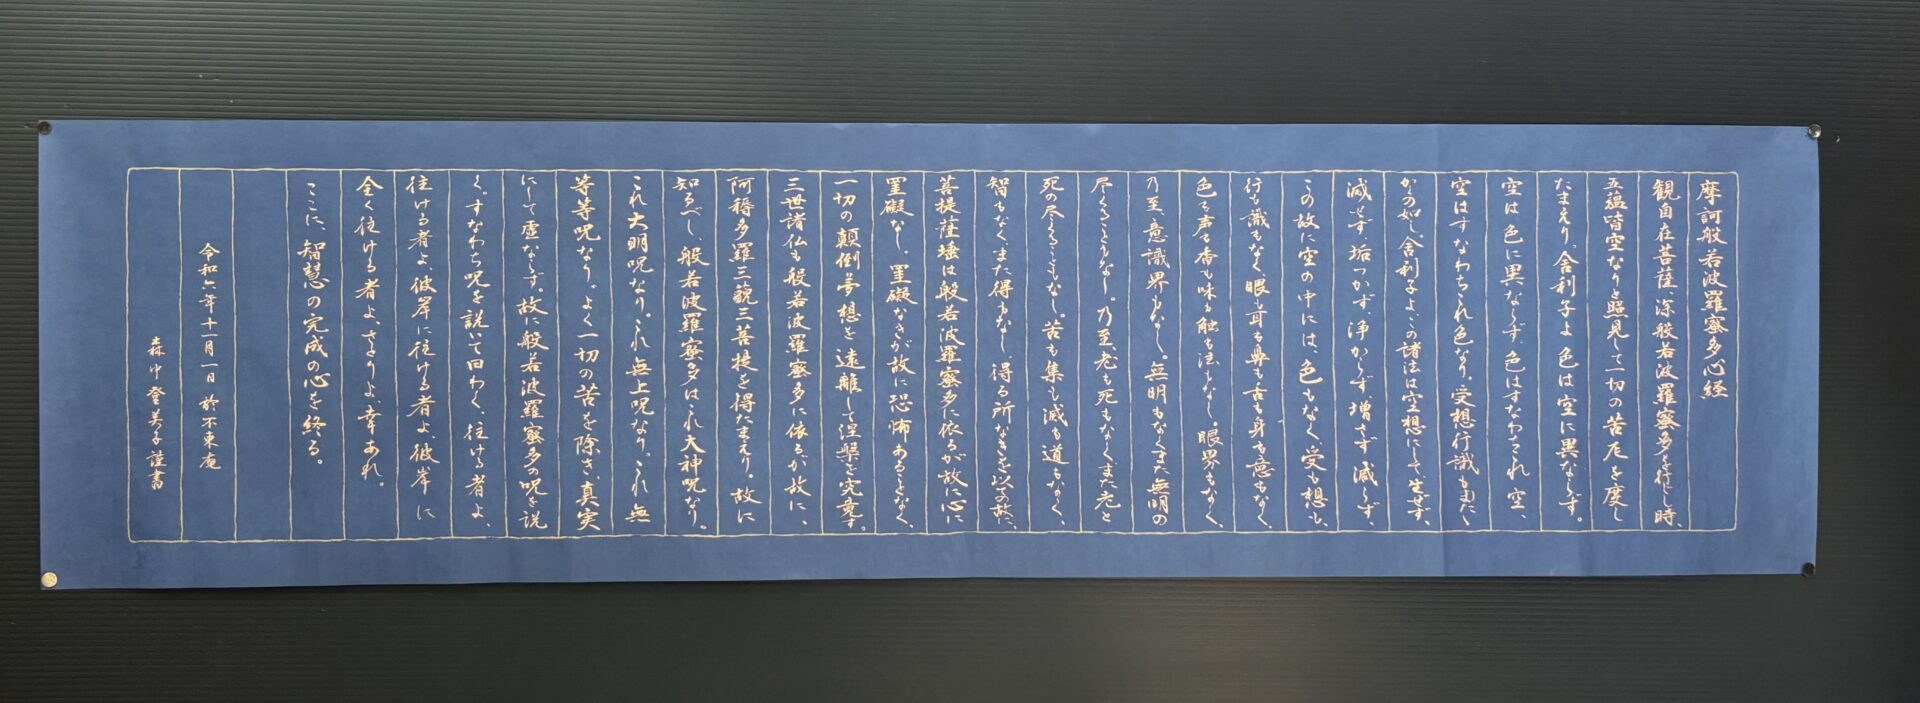 摩訶般若波羅蜜多心経
観自在菩薩深般若波羅蜜多を行じし時、
五蘊皆空なりと照見して一切の苦厄を度し
たまえり。舎利子よ色は空に異ならず。
空は色に異ならず、色はすなわちこれ空、
空はすなわちこれ色なり。受想行識もまたく
かくの如し。舎利子よ、この諸法は空想にして生ぜず、
滅せず、垢つかず、浄からず、増さず減らず、
この故に空の中には、色もなく、受も想も、
行も識もなく、眼も耳も鼻も舌も身も意もなく、
色も声も香も味も触も法もなし。眼界もなく、
乃至、意識界もなし。無明もなくまた無明の
尽くることもなし。乃至、老も死もなくまた老と
死の尽くることもなし。苦も集も滅も道もなく、
智もなく、また得もなし、得る所なきを以ての故に、
菩提薩埵は般若波羅蜜多に依るが故に心に
罣礙なし。罣礙なきが故に恐怖あることなく、
一切の顛倒夢想を遠離して涅槃を究竟す。
三世諸仏も般若波羅蜜多に依るが故に、
阿耨多羅三藐三菩提を得たまえり。故に
知るべし、般若波羅蜜多はこれ大神呪なり。
これ大明呪なり。これ無上呪なり。これ無
等等呪なり。よく一切の苦を除き、真実
にして虚ならず。故に般若波羅蜜多の呪を説
く。すなわち呪を説いて曰わく、往ける者よ、
往ける者よ、彼岸に往ける者よ、彼岸に
全く往ける者よ、さとりよ、幸あれ。
ここに、智慧の完成の心を終る。
令和六年十一月一日於不東庵
森中登美子謹書